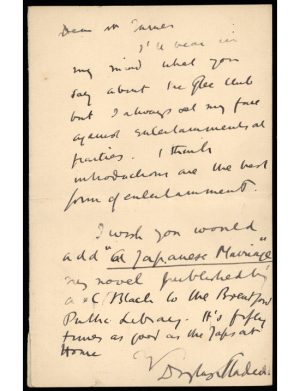 Dear Mr Turner
I'll bear in
my mind what you
say about the Glee Club
but I always set my face
against entertainments at
parties. I think
introductions are the best
form of entertainment.
I wish you would
add "A Japanese Marriage"
my novel published by
A & C Black to the Brentford
Public Library. It's fifty
times as good as the Japs at
Home
Douglas Sladen